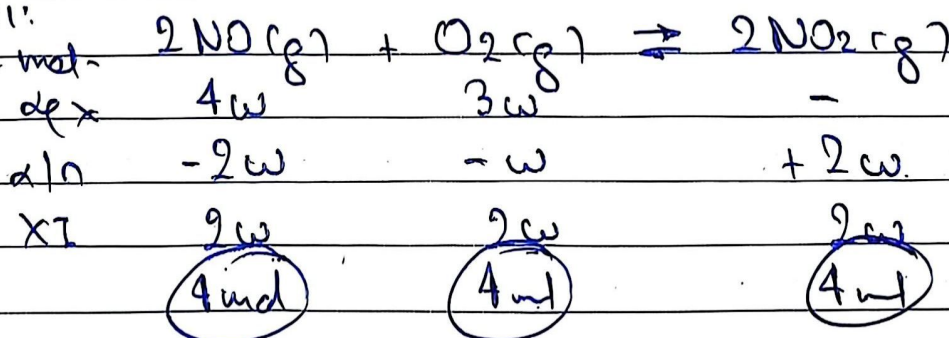 mol. 2NO(g) + O2(g) ⇌ 2NO2(g)
αρχ 4ω 3ω -
α/π -2ω -ω +2ω.
ΧΙ 2ω 2ω 2ω
4 mol 4 mol 4 mol